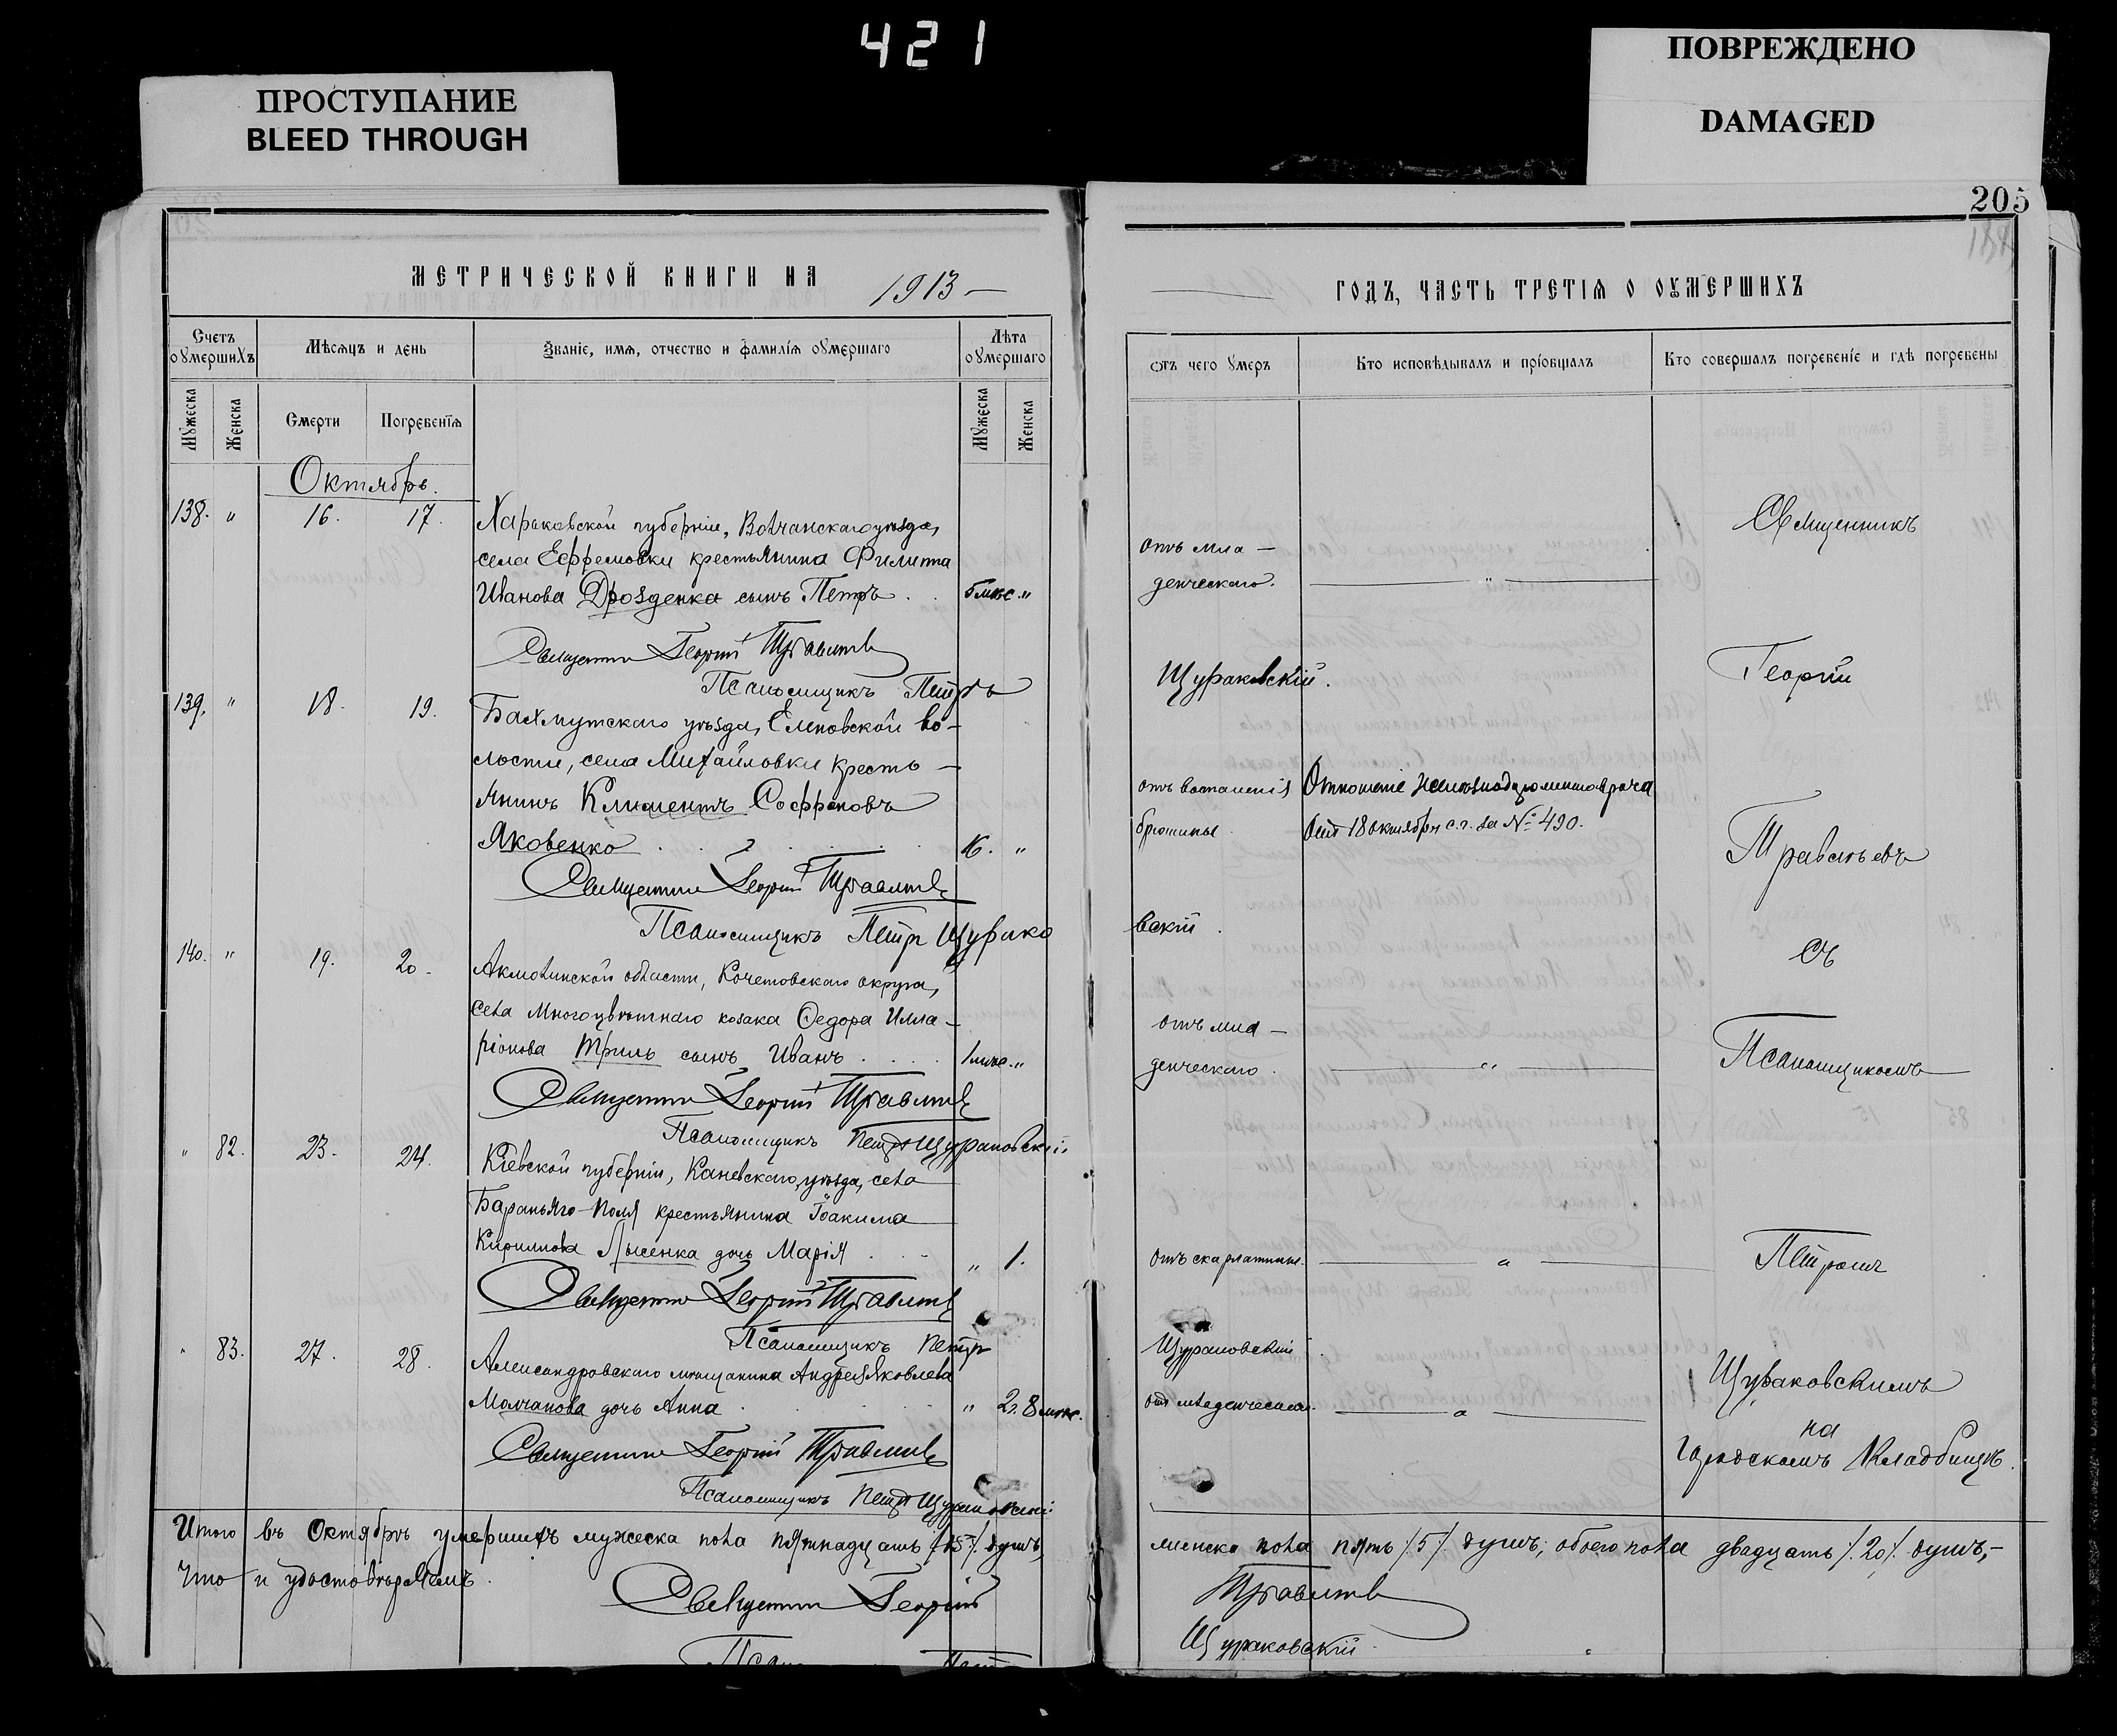 421
ПРОСТУПАНИЕ
BLEED THROUGH
ПОВРЕЖДЕНО
DAMAGED
205
МЕТРИЧЕСКОЙ КНИГИ НА 1913
ГОДЪ, ЧАСТЬ ТРЕТІЯ О ОУМЕРШИХЪ
Счетъ оумершихъ
Мѣсяцъ и день
Званіе, имя, отчество и фамилія оумершаго
Лѣта оумершаго
Отъ чего умеръ
Кто исповѣдывалъ и пріобщалъ
Кто совершалъ погребеніе и гдѣ погребены
Мужеска
Женска
Смерти
Погребенія
Мужеска
Женска
Октябрь.
138. " 16. 17. Харьковской губерніи, Волчанскаго уѣзда,
села Ефремовки крестьянина Филиппа
Иванова Дрозденка сынъ Петръ . . "
отъ мла-
денческаго. "
Священникъ
Священникъ Георгій
Псаломщикъ Петръ
Щураковскій.
Георгій
139. " 18. 19. Бахмутскаго уѣзда, Еленовской во-
лости, села Михайловки кресто-
янинъ Климентъ Софроновъ
Яковенко "
отъ воспаленія
брюшины.
Отношеніе
отъ 18 октября с.г. за № 490.
Священникъ Георгій
Псаломщикъ Петръ Щурако
вскій.
съ
140. " 19. 20. Акмолинской области, Кочетовскаго округа,
села Многоцвѣтнаго козака Федора Илла-
ріонова Триль сынъ Иванъ . . . . 1 мѣс. "
отъ мла-
денческаго. "
Псаломщикомъ
Священникъ Георгій
Псаломщикъ Петръ Щураковскій
" 82. 23. 24. Кіевской губерніи, Каневскаго уѣзда, села
Бараньяго-Поля крестьянина Іоакима
Кириллова Лысенка дочь Марія . . . " 1.
отъ скарлатины. "
Петромъ
Священникъ Георгій
Псаломщикъ Петръ
Щураковскій.
" 83. 27. 28. Александровскаго мѣщанина Андрея Яковлева
Молчанова дочь Анна " 2г. 8 мѣс.
отъ младенческаго. "
Щураковскимъ
на
городскомъ кладбищѣ.
Священникъ Георгій
Псаломщикъ Петръ Щураковскій
Итого въ Октябрѣ умершихъ мужеска пола пятнадцать /.15./ душъ,
женска пола пять /.5./ душъ; обоего пола двадцать /.20./ душъ,-
что и удостовѣряемъ.
Священникъ Георгій
Щураковскій.